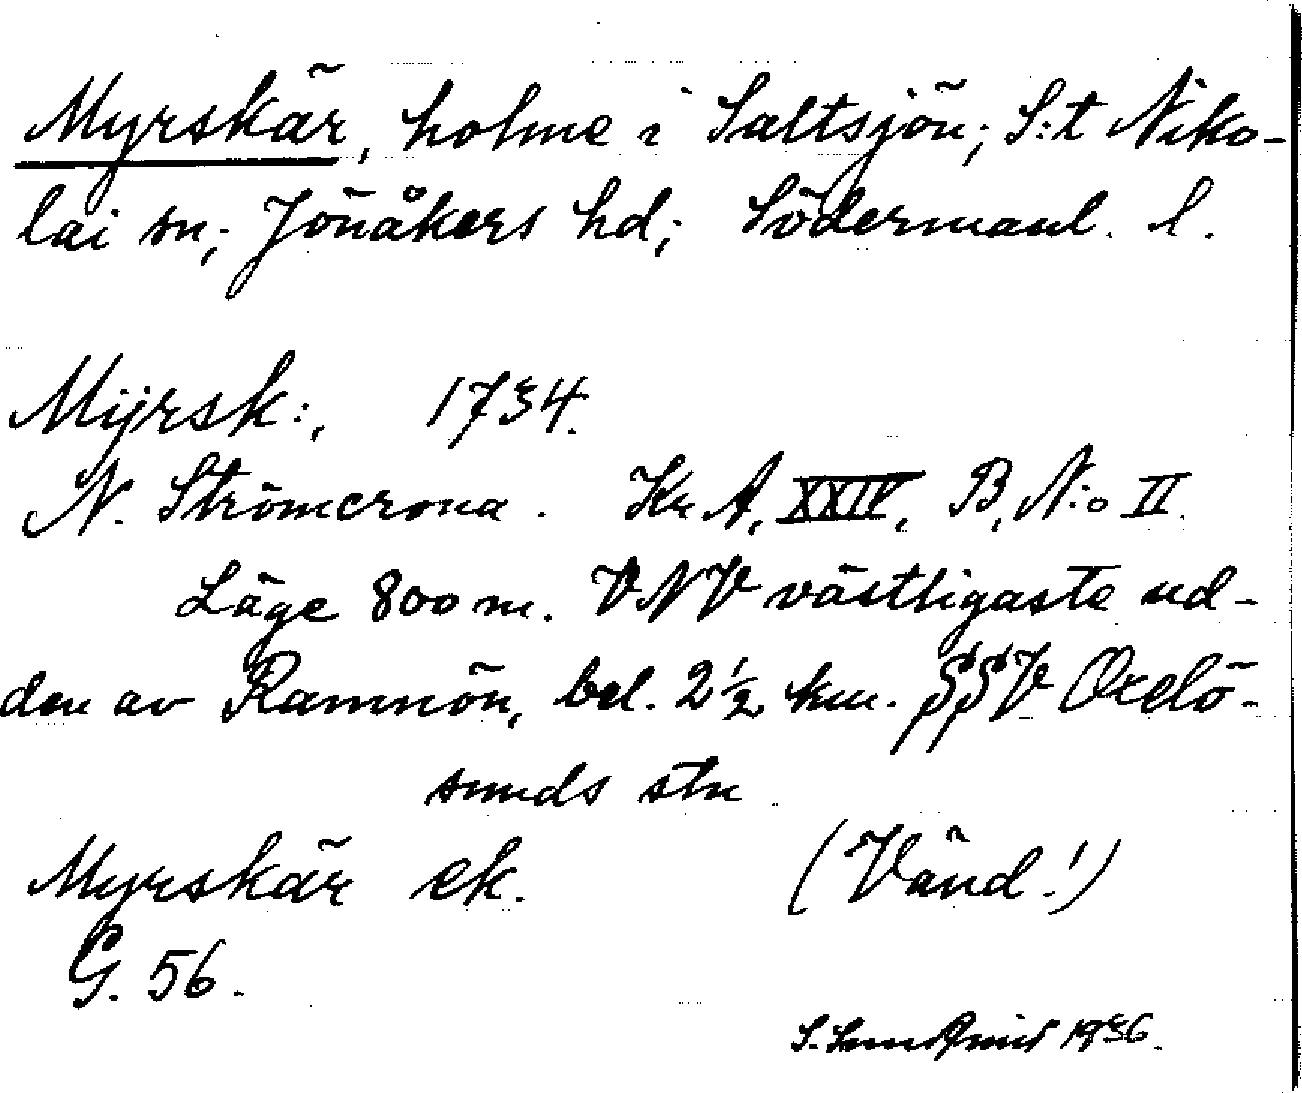 Myrskär, holme i Saltsjön; S:t Niko-
lai sn; Jönåkers hd; Södermanl. l.
Mÿrsk:, 1734.
N. Strömcrona. Kr. A, XXIV, B, N:o II.
Läge 800 m. VNV västligaste ud-
den av Ramnön, bel. 2 1/2 km. SSV Oxelö-
sunds stn.
Myrskär ek. (Vänd!)
G. 56.
S. Sundqvist 1936.